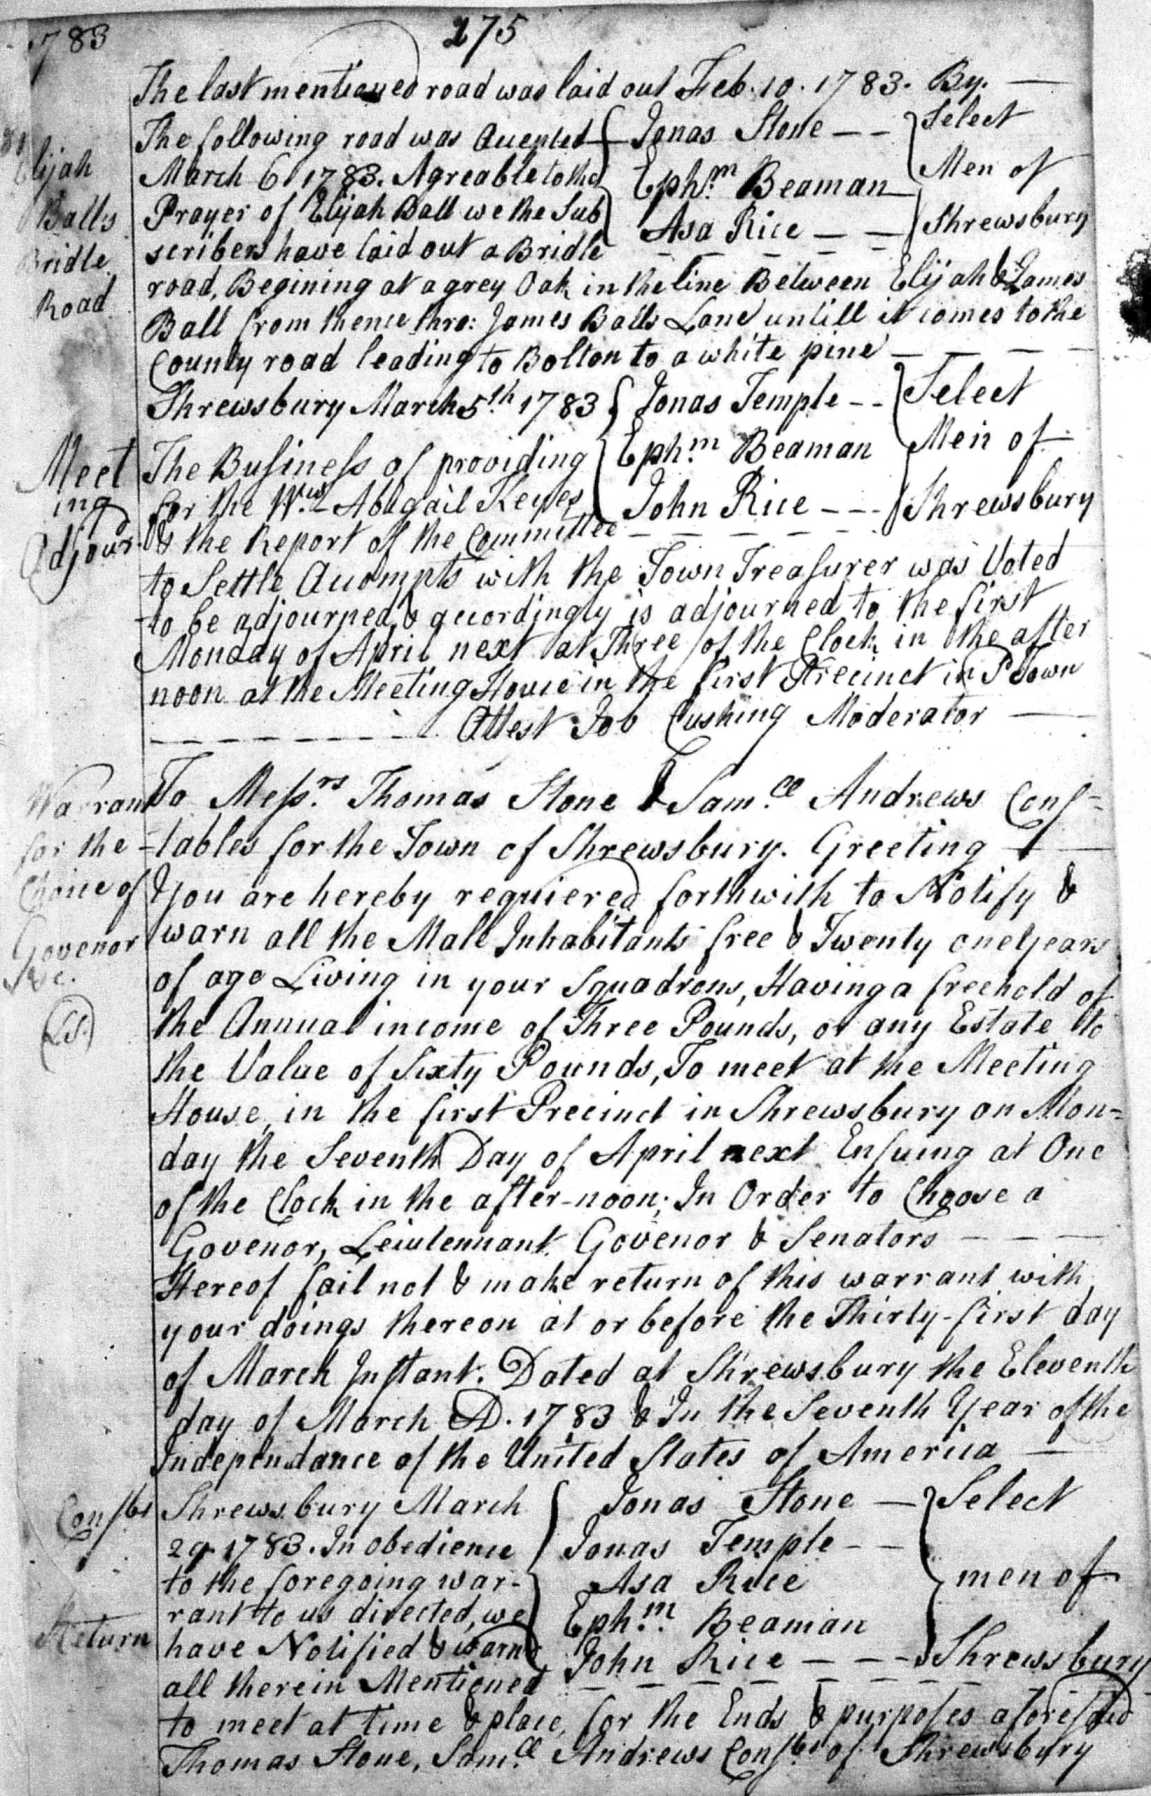 1783
275
The last mentioned road was laid out Feb. 10. 1783. By. —
The following road was Accepted { Jonas Stone — — } Select
March 6. 1783. Agreable to the Ephm. Beaman Men of
Prayer of Elijah Ball we the Sub Asa Rice — — Shrewsbury
Elijah
Balls
Bridle
Road
scribers have laid out a Bridle — — — —
road, Begining at a grey Oak in the line Between Elijah & James
Ball from thence thro: James Balls Lane untill it comes to the
County road leading to Bolton to a white pine — — — —
Shrewsbury March 5th 1783 { Jonas Temple — — } Select
Meet
ing
Adjourd.
The Business of providing Ephm. Beaman Men of
for the Wid. Abigail Keyes John Rice — — — Shrewsbury
& the Report of the Committee — — — —
to Settle Accompts with the Town Treasurer was Voted
to be adjourned, & accordingly is adjourned to the first
Monday of April next at Three of the Clock in the after
noon at the Meeting House in the first Precinct in sd. Town
— — — — Attest Job Cushing Moderator —
Warrant
for the
Choice of
Govenor
&c.
(LS)
To Messrs. Thomas Stone & Samll. Andrews Cons=
-tables for the Town of Shrewsbury. Greeting — —
You are hereby requiered forthwith to Notify &
warn all the Male Inhabitants free & Twenty one years
of age Living in your Squadrons, Having a freehold of
the Annual income of Three Pounds, or any Estate to
the Value of Sixty Pounds, To meet at the Meeting
House, in the first Precinct in Shrewsbury on Mon=
day the Seventh Day of April next Ensuing at One
of the Clock in the after-noon; In Order to Choose a
Govenor, Leiutennant Govenor & Senators — — —
Hereof fail not & make return of this warrant with
your doings thereon at or before the Thirty-first day
of March Instant. Dated at Shrewsbury the Eleventh
day of March AD. 1783 & In the Seventh Year of the
Independance of the United States of America —
Consbs
Return
Shrewsbury March { Jonas Stone — } Select
29 1783. In obedience Jonas Temple — —
to the foregoing war- Asa Rice men of
rant to us directed, we Ephm. Beaman
have Notified & warnd John Rice — — — Shrewsbury
all therein Mentioned — — — — — —
to meet at time & place, for the Ends & purposes aforesaid
Thomas Stone, Samll. Andrews Consbs. of Shrewsbury